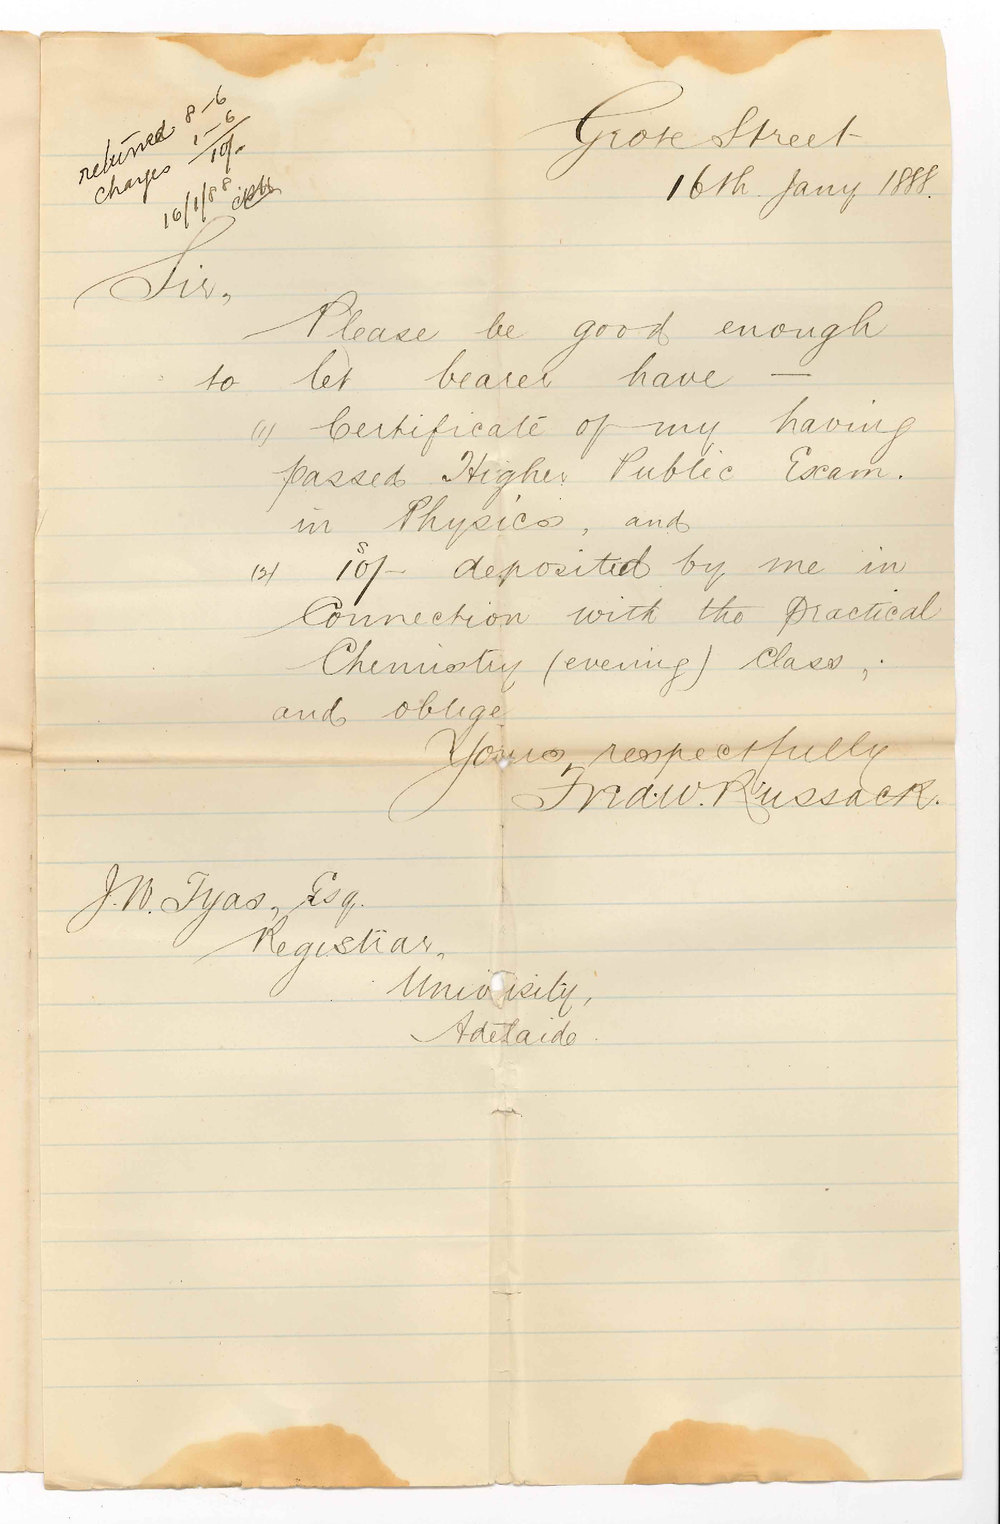 returned 8-6
charges 1-6
10/-
16/1/88
Grote Street
16th Jany 1888.
Sir,
Please be good enough
to let bearer have —
(1) Certificate of my having
passed Higher Public Exam.
in Physics, and
(2) 10s/- deposited by me in
Connection with the practical
Chemistry (evening) class,
and oblige
Yours respectfully
Fred. W. Russack.
J. W. Tyas, Esq.
Registrar,
University,
Adelaide.